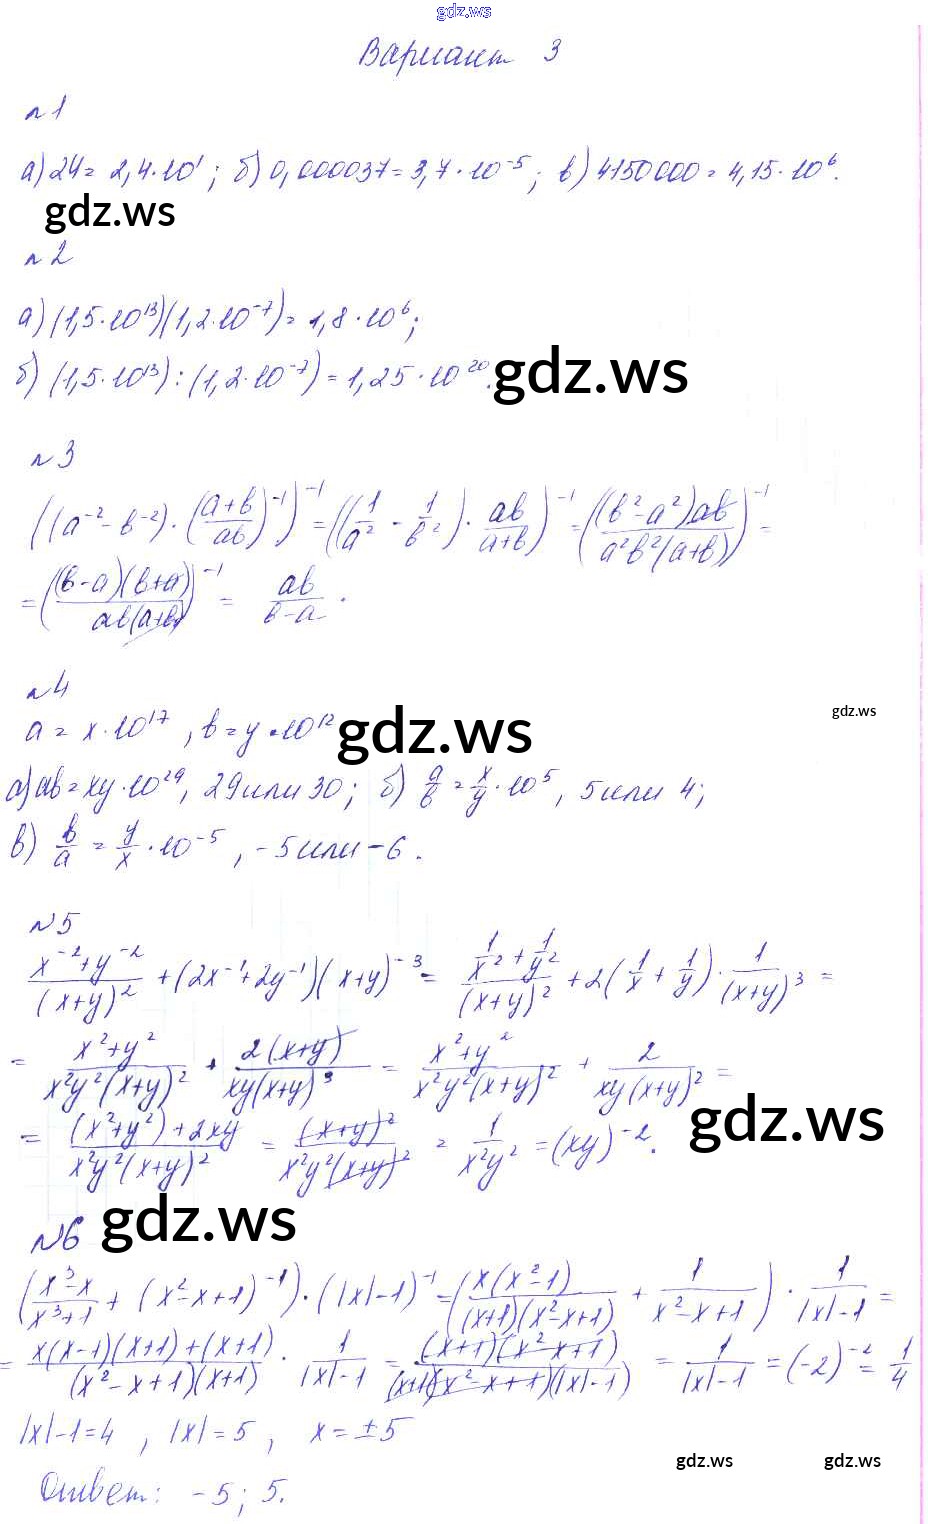 gdz.ws
Вариант 3
№1
а) 24 = 2,4·10¹; б) 0,000037 = 3,7·10⁻⁵; в) 4150000 = 4,15·10⁶.
gdz.ws
№2
а) (1,5·10¹³)(1,2·10⁻⁷) = 1,8·10⁶;
б) (1,5·10¹³):(1,2·10⁻⁷) = 1,25·10²⁰.
gdz.ws
№3
((a⁻²-b⁻²)·((a+b)/(ab))⁻¹)⁻¹ = ((1/a² - 1/b²)·ab/(a+b))⁻¹ = (((b²-a²)ab)/(a²b²(a+b)))⁻¹ =
= (((b-a)(b+a))/(ab(a+b)))⁻¹ = ab/(b-a).
№4
a = x·10¹⁷, b = y·10¹²
gdz.ws
gdz.ws
а) ab = xy·10²⁹, 29 или 30; б) a/b = x/y·10⁵, 5 или 4;
в) b/a = y/x·10⁻⁵, -5 или -6.
№5
(x⁻²+y⁻²)/(x+y)² + (2x⁻¹+2y⁻¹)(x+y)⁻³ = (1/x² + 1/y²)/(x+y)² + 2(1/x + 1/y)·1/(x+y)³ =
= (x²+y²)/(x²y²(x+y)²) + (2(x+y))/(xy(x+y)³) = (x²+y²)/(x²y²(x+y)²) + 2/(xy(x+y)²) =
= ((x²+y²)+2xy)/(x²y²(x+y)²) = (x+y)²/(x²y²(x+y)²) = 1/(x²y²) = (xy)⁻².
gdz.ws
gdz.ws
№6
((x³-x)/(x³+1) + (x²-x+1)⁻¹)·(|x|-1)⁻¹ = ((x(x²-1))/((x+1)(x²-x+1)) + 1/(x²-x+1))·1/(|x|-1) =
= (x(x-1)(x+1)+(x+1))/((x²-x+1)(x+1))·1/(|x|-1) = ((x+1)(x²-x+1))/((x+1)(x²-x+1)(|x|-1)) = 1/(|x|-1) = (-2)⁻² = 1/4
|x|-1=4, |x|=5, x=±5
gdz.ws
gdz.ws
Ответ: -5; 5.